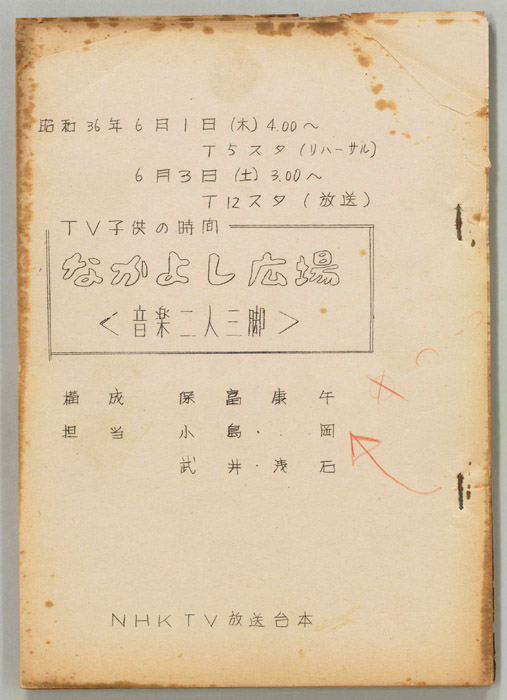 昭和36年6月1日(木)4.00〜
T5スタ(リハーサル)
6月3日(土)3.00〜
T12スタ(放送)
TV子供の時間
なかよし広場
＜音楽二人三脚＞
構成 保富康午
担当 小島・岡
武井・浅石
NHKTV放送台本